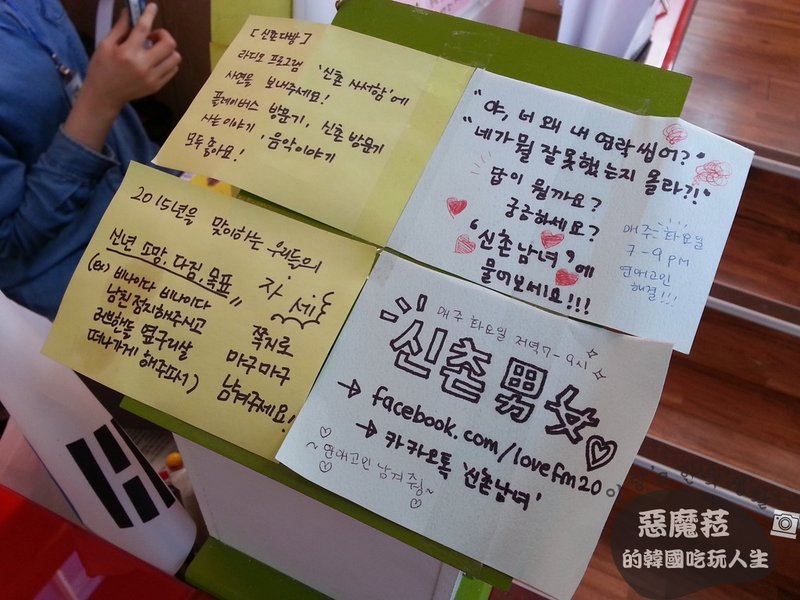 [신촌다방]
라디오 프로그램 '신촌 사서함'에
사연을 보내주세요!
플레이버스 방문기, 신촌 방문기
사는이야기, 음악이야기
모두 좋아요!
"야, 너 왜 내 연락 씹어?"
"네가 뭘 잘못했는지 몰라?!"
답이 뭘까요?
궁금하세요?
'신촌남녀'에
물어보세요!!!
매주 화요일
7-9PM
연애고민
해결!!!
2015년을 맞이하는 우리들의
신년 소망, 다짐, 목표
자세
(ex) 비나이다 비나이다
남친 점지해주시고
러브핸들 옆구리살
떠나가게 해주따이)
쪽지로
마구마구
남겨주세요!
매주 화요일 저녁 7-9시
신촌男女
→ facebook.com/lovefm20
→ 카카오톡 '신촌남녀'
~연애고민 남겨줭~
惡魔菈
的韓國吃玩人生